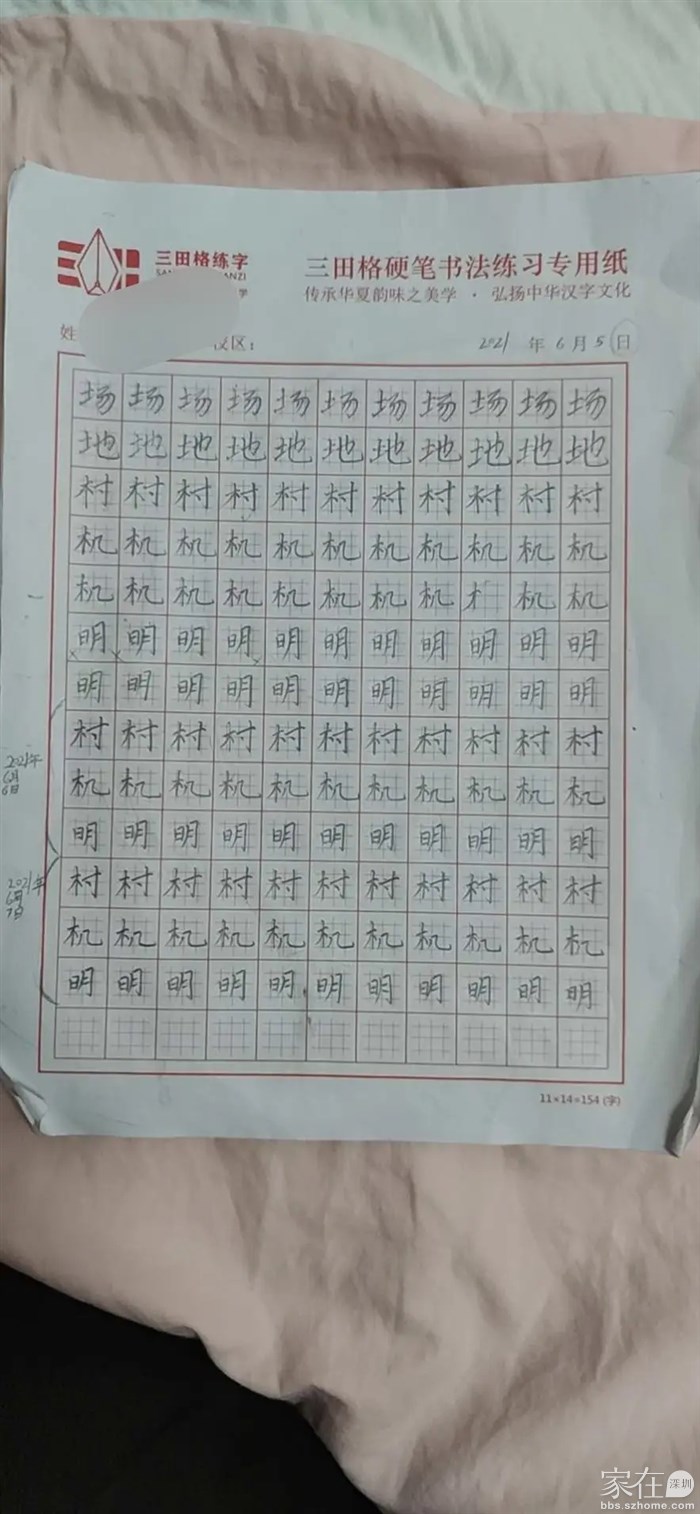 三田格练字
三田格硬笔书法练习专用纸
传承华夏韵味之美学 · 弘扬中华汉字文化
区：
2021 年 6 月 5 日
场 场 场 场 场 场 场 场 场 场 场
地 地 地 地 地 地 地 地 地 地 地
村 村 村 村 村 村 村 村 村 村 村
机 机 机 机 机 机 机 机 机 机 机
机 机 机 机 机 机 机 机 机 机
明 明 明 明 明 明 明 明 明 明 明
明 明 明 明 明 明 明 明 明 明 明
村 村 村 村 村 村 村 村 村 村 村
2021年
6月
6日
机 机 机 机 机 机 机 机 机 机 机
明 明 明 明 明 明 明 明 明 明 明
2021年
6月
7日
村 村 村 村 村 村 村 村 村 村 村
机 机 机 机 机 机 机 机 机 机 机
明 明 明 明 明 明 明 明 明 明 明
11×14=154 (字)
家在深圳
bbs.szhome.com